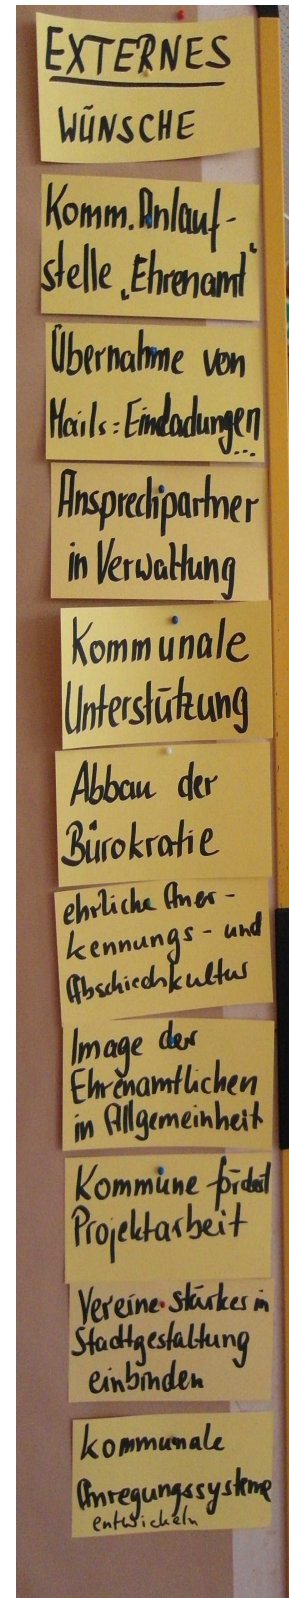 EXTERNES
WÜNSCHE
Komm. Anlauf-
stelle „Ehrenamt"
Übernahme von
Mails = Einladungen
...
Ansprechpartner
in Verwaltung
Kommunale
Unterstützung
Abbau der
Bürokratie
ehrliche Aner-
kennungs- und
Abschiedskultur
Image der
Ehrenamtlichen
in Allgemeinheit
Kommune fördert
Projektarbeit
Vereine stärker in
Stadtgestaltung
einbinden
kommunale
Anregungssysteme
entwickeln